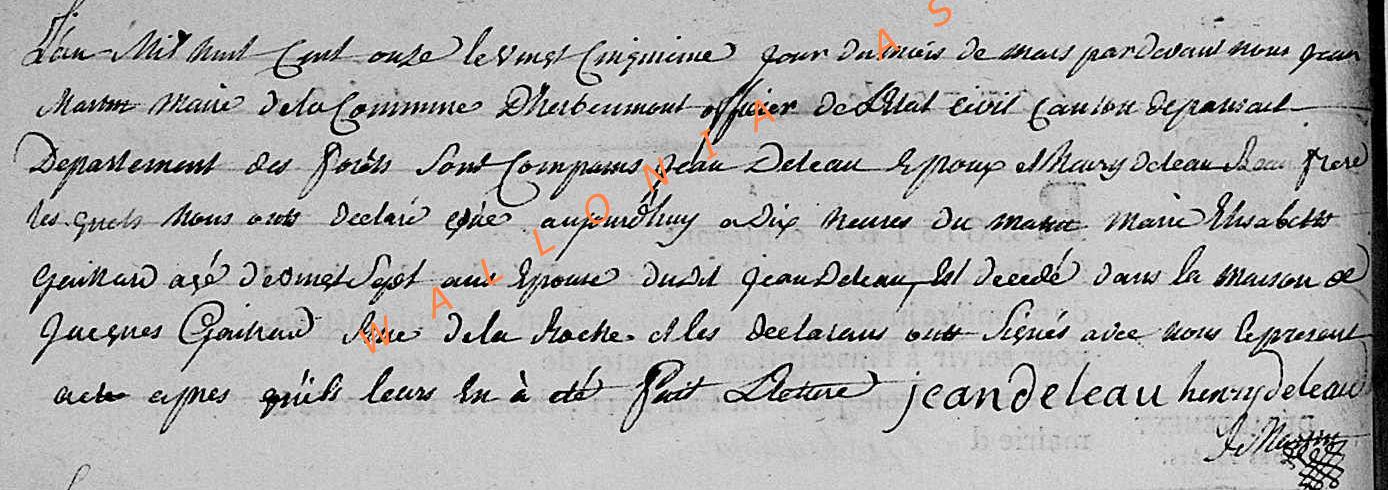 L'an Mil huit Cent onze le vingt Cinquieme jour du mois de mars par devant nous jean
Martin Maire de la Commune D'herbeumont officier de L'Etat Civil Canton de paliseul
Departement des Forêts Sont Comparus jean Deleau Epoux et henry deleau Beau frere
les quels nous ont declaré que aujourd'huy a Dix heures du matin Marie Elisabeth
Gaillard agé de vingt Sept ans Epouse du dit jean Deleau, Est decedé dans la maison de
jacques Gaillard Rue de la Roche et les declarans ont Signés avec nous le present
acte apres qu'ils leurs En à été Fait Lecture jean deleau henry deleau
J Martin
WALLONIA AS